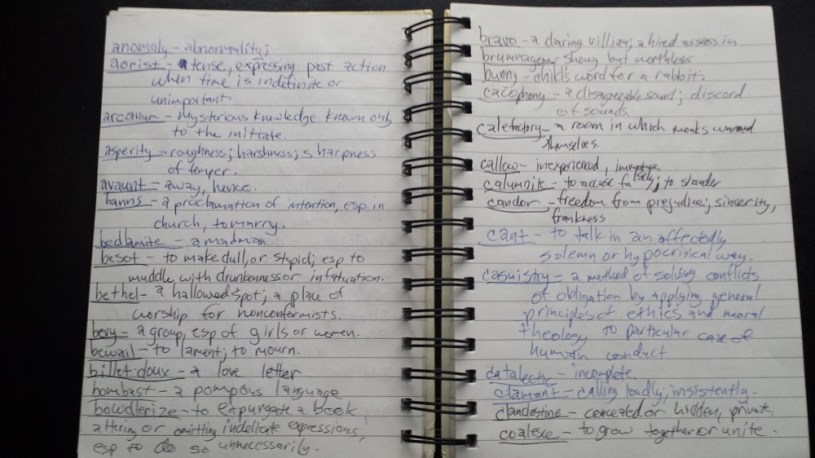 anomaly - abnormality;
aorist - a tense, expressing past action
when time is indefinite or
unimportant.
arcanum - mysterious knowledge known only
to the initiate.
asperity - roughness; harshness; sharpness
of temper.
avaunt - away, hence.
banns - a proclamation of intention, esp in
church, to marry.
bedlamite - a madman
besot - to make dull, or stupid, esp to
muddle with drunkenness or infatuation.
bethel - a hallowed spot; a place of
worship for nonconformists.
bevy - a group, esp of girls or women.
bewail - to lament; to mourn.
billet-doux - a love letter
bombast - a pompous language
bowdlerize - to expurgate a book
altering or omitting indelicate expressions,
esp to do so unnecessarily.
bravo - a daring villian; a hired assassin
brummagem showy but worthless
bunny - child's word for a rabbit.
cacophony - a disagreeable sound; discord
of sounds.
calefactory - a room in which monks warmed
themselves.
callow - inexperienced, immature.
calumnik - to accuse falsely; to slander
candor - freedom from prejudice; sincerity,
frankness
cant - to talk in an affectedly
solemn or hypocritical way.
casuistry - a method of solving conflicts
of obligation by applying general
principles of ethics and moral
theology to particular case of
human conduct
catalectic - incomplete.
clamant - calling loudly; insistently.
clandestine - concealed or hidden, private
coalesce - to grow together or unite.